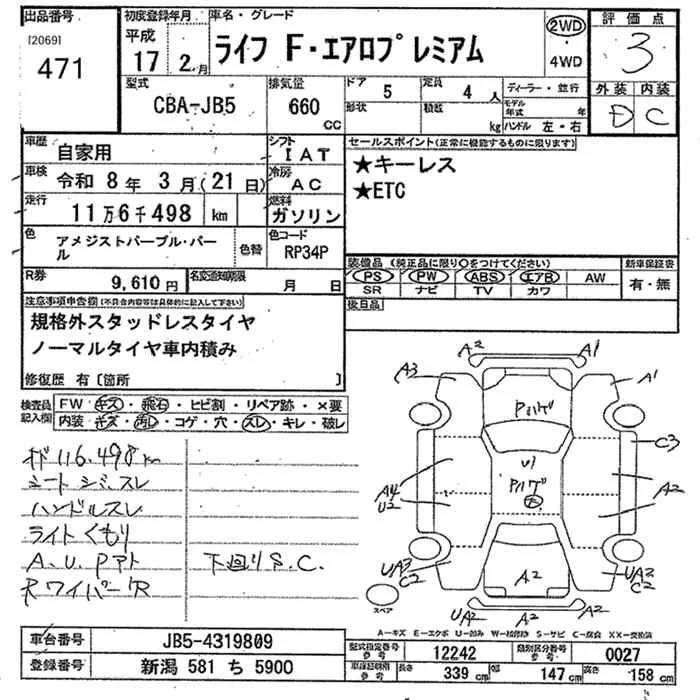 出品番号 初度登録年月 車名・グレード 評価点
[2069] 平成
471 17年 2月 ライフ F・エアロプレミアム 2WD・4WD 3
型式 排気量 ドア 定員 ディーラー・並行 外装 内装
CBA-JB5 660 cc 5 4人 D C
形状 積載 kg モデル年式 年
ハンドル 左・右
車歴 自家用 シフト IAT セールスポイント(正常に機能するものに限ります)
車検 令和 8年 3月(21日) 冷房 AC ★キーレス
走行 11万6千498 km 燃料 ガソリン ★ETC
色 アメジストパープル・パール 色替 色コード RP34P
装備品 (純正品に限り○をつけてください) 新車保証書
R券 9,610円 名変通知期限 月 日 PS PW ABS エアB AW 有・無
SR ナビ TV カワ
注意事項申告欄(不具合内容等は具体的に記入して下さい) 後日品
規格外スタッドレスタイヤ
ノーマルタイヤ車内積み
修復歴 有〔箇所 〕
検査員記入欄 FW キズ・飛石・ヒビ割・リペア跡・×要
内装 キズ・汚レ・コゲ・穴・スレ・キレ・破レ
116,498km
シート シミ、スレ
ハンドルスレ
ライト くもり
A.U.Pアト 下廻りS.C.
RワイパーR
A2 A1
A3 A1
Pハゲ
C3
U1
Pハゲ
A4 U2 A2
UA3 C2 UA2 C2
A2
スペア UA2 A2
A-キズ E-エクボ U-凹み W-補修跡 S-サビ C-腐食 XX-交換済
車台番号 JB5-4319809 型式指定番号 参考 12242 類別区分番号 参考 0027
登録番号 新潟 581 ち 5900 車体諸明細 参考 長さ 339 cm 幅 147 cm 高さ 158 cm